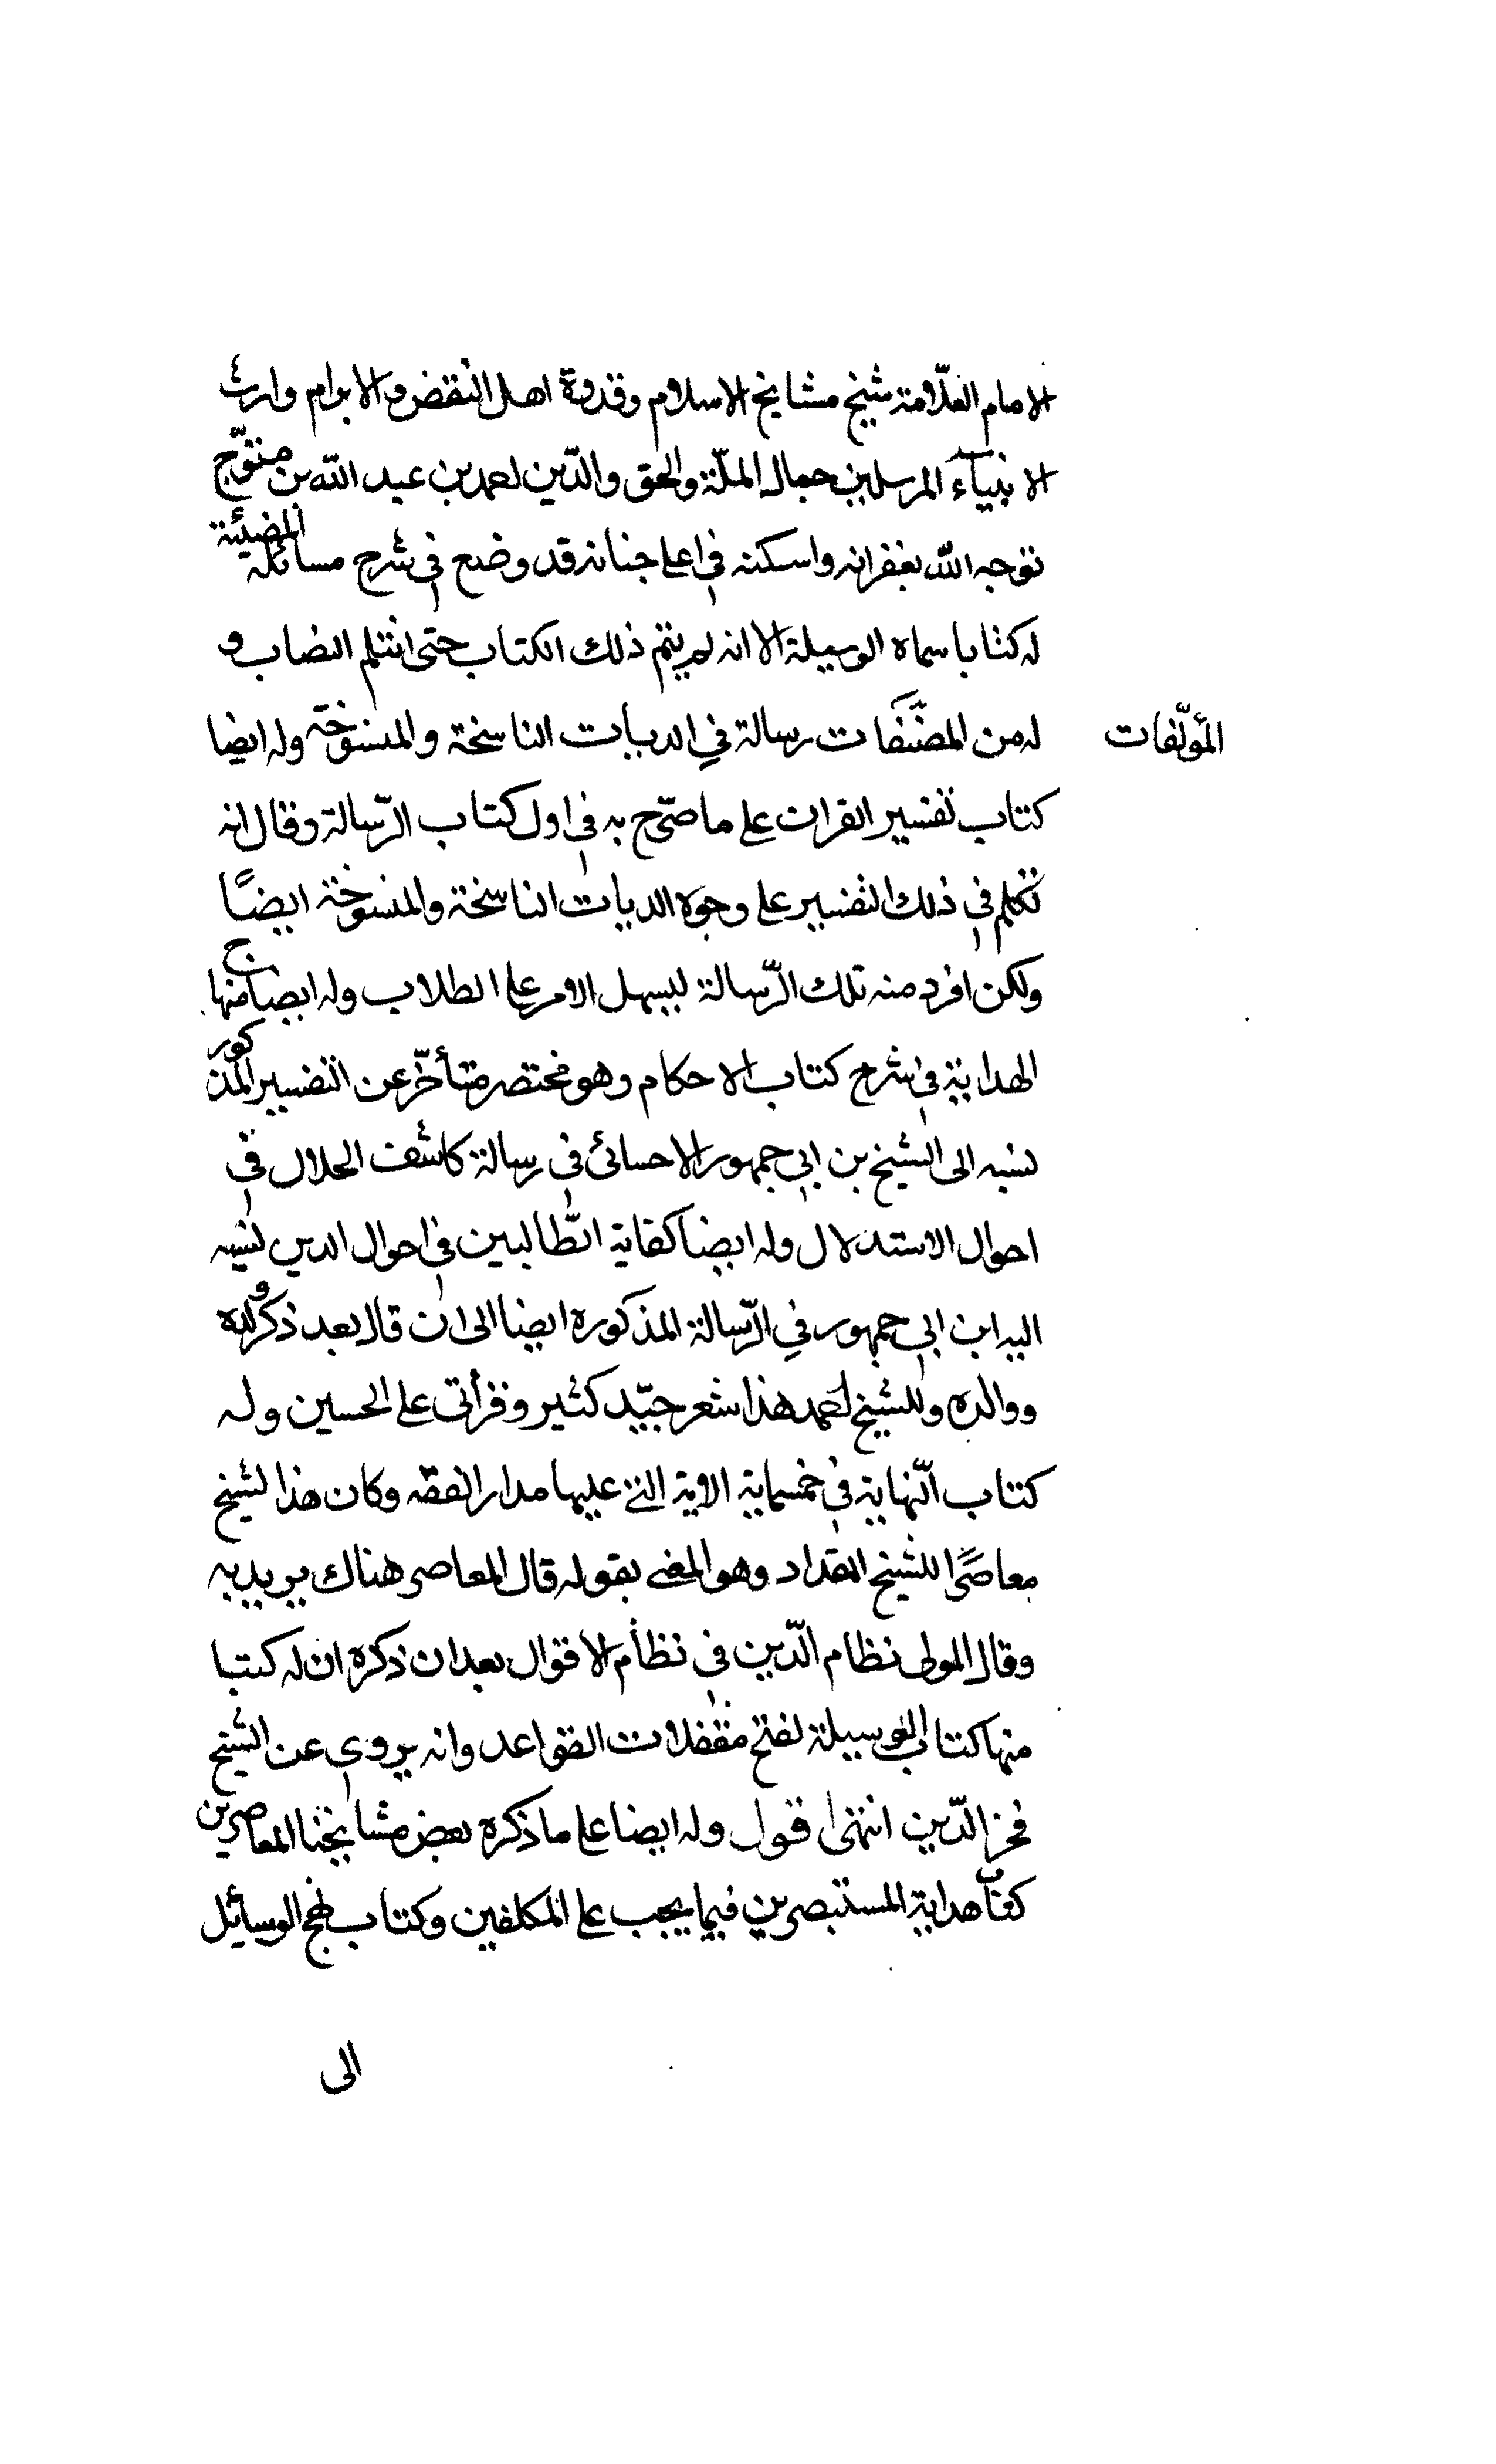 الامام العلّامة شيخ مشايخ الاسلام وقدوة اهل النقض والابرام وارث
الانبياء المرسلين جمال الملّة والحق والدّين احمد بن عبد الله بن متوّج
توجه الله بغفرانه واسكنه في اعلا جنانه قد وضع في شرح مسائله المضيئة
له كتابا سماه الوسيلة الا انه لم يتم ذلك الكتاب حتى انثلم النصاب و
له من المصنّفات رسالة في الايات الناسخة والمنسوخة وله ايضا
المؤلّفات
كتاب تفسير القران على ما صرّح به في اول كتاب الرّسالة وقال انه
تكلم في ذلك التفسير على وجوه الايات الناسخة والمنسوخة ايضًا
ولكن افرد منه تلك الرّسالة ليسهل الامر على الطلاب وله ايضا منهاج
الهداية في شرح كتاب الاحكام وهو مختصر متأخّر عن التفسير المذكور
نسبه الى الشيخ بن ابي جمهور الاحسائي في رسالة كاشفت الحلال في
احوال الاستدلال وله ايضا كفاية الطّالبين في احوال الدين نسبه
اليه ابن ابي جمهور في الرّسالة المذكوره ايضا الى ان قال بعد ذكر ولده
ووالده وللشيخ احمد هذا شعر جيّد كثير وقرأتى على الحسين وله
كتاب النّهاية في خمسماية الاية التي عليها مدار الفقه وكان هذا لشيخ
معاصرًا للشيخ المقداد وهو المعني بقوله قال المعاصر هناك يريد به
وقال المولى نظام الدّين في نظام الاقوال بعد ان ذكره ان له كتبا
منها كتاب الوسيلة لفتح مقفلات القواعد وانه يروى عن الشيخ
فخر الدّين انتهى اقول وله ايضا على ما ذكره بعض مشايخنا المعاصرين
كتاب هداية المستبصرين فيما يجب على المكلفين وكتاب نهج الوسائل
الى